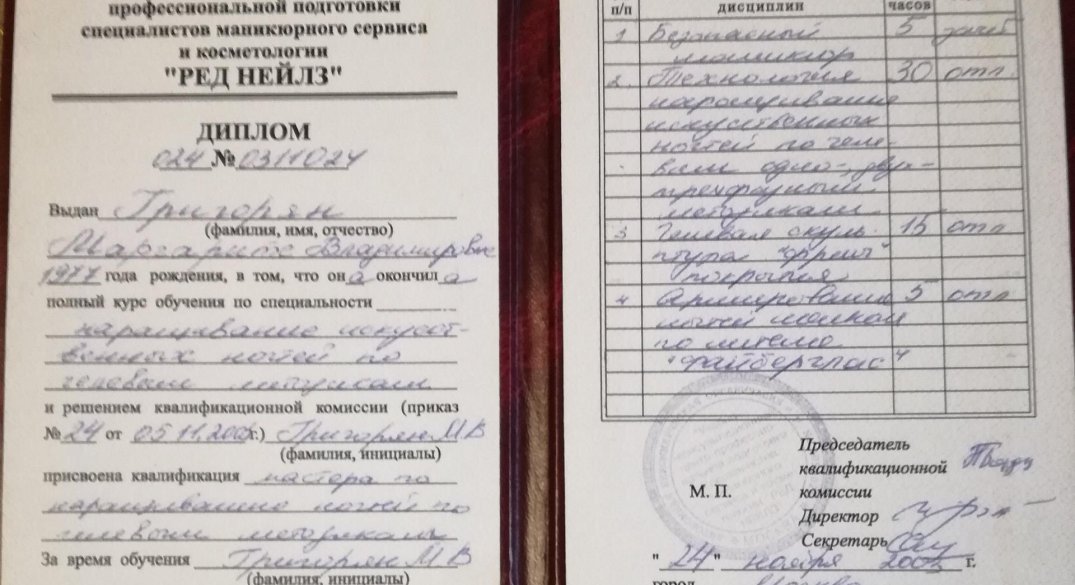 профессиональной подготовки
специалистов маникюрного сервиса
и косметологии
"РЕД НЕЙЛЗ"
ДИПЛОМ
024 № 0311024
Выдан Григорян
(фамилия, имя, отчество)
Маргарите Владимировне
1977 года рождения, в том, что она окончила
полный курс обучения по специальности
наращивание искусст-
венных ногтей по
гелевым методикам
и решением квалификационной комиссии (приказ
№ 24 от 05.11. г.) Григорян М В
(фамилия, инициалы)
присвоена квалификация мастера по
наращиванию ногтей по
гелевым методикам
За время обучения Григорян М В
(фамилия, инициалы)
п/п дисциплин часов
1 Безопасный 5 зачёт
маникюр
2. Технология 30 отл
наращивание
искусственных
ногтей по геле-
вым одно-, двух-
трехфазным
методикам
3 Гелевая скуль- 15 отл
птура "френч"
покрытия
4 Армирование 5 отл
ногтей
по
"файберглас"
Председатель
квалификационной
М. П. комиссии
Директор
Секретарь
"24" ноября г.
город Москва